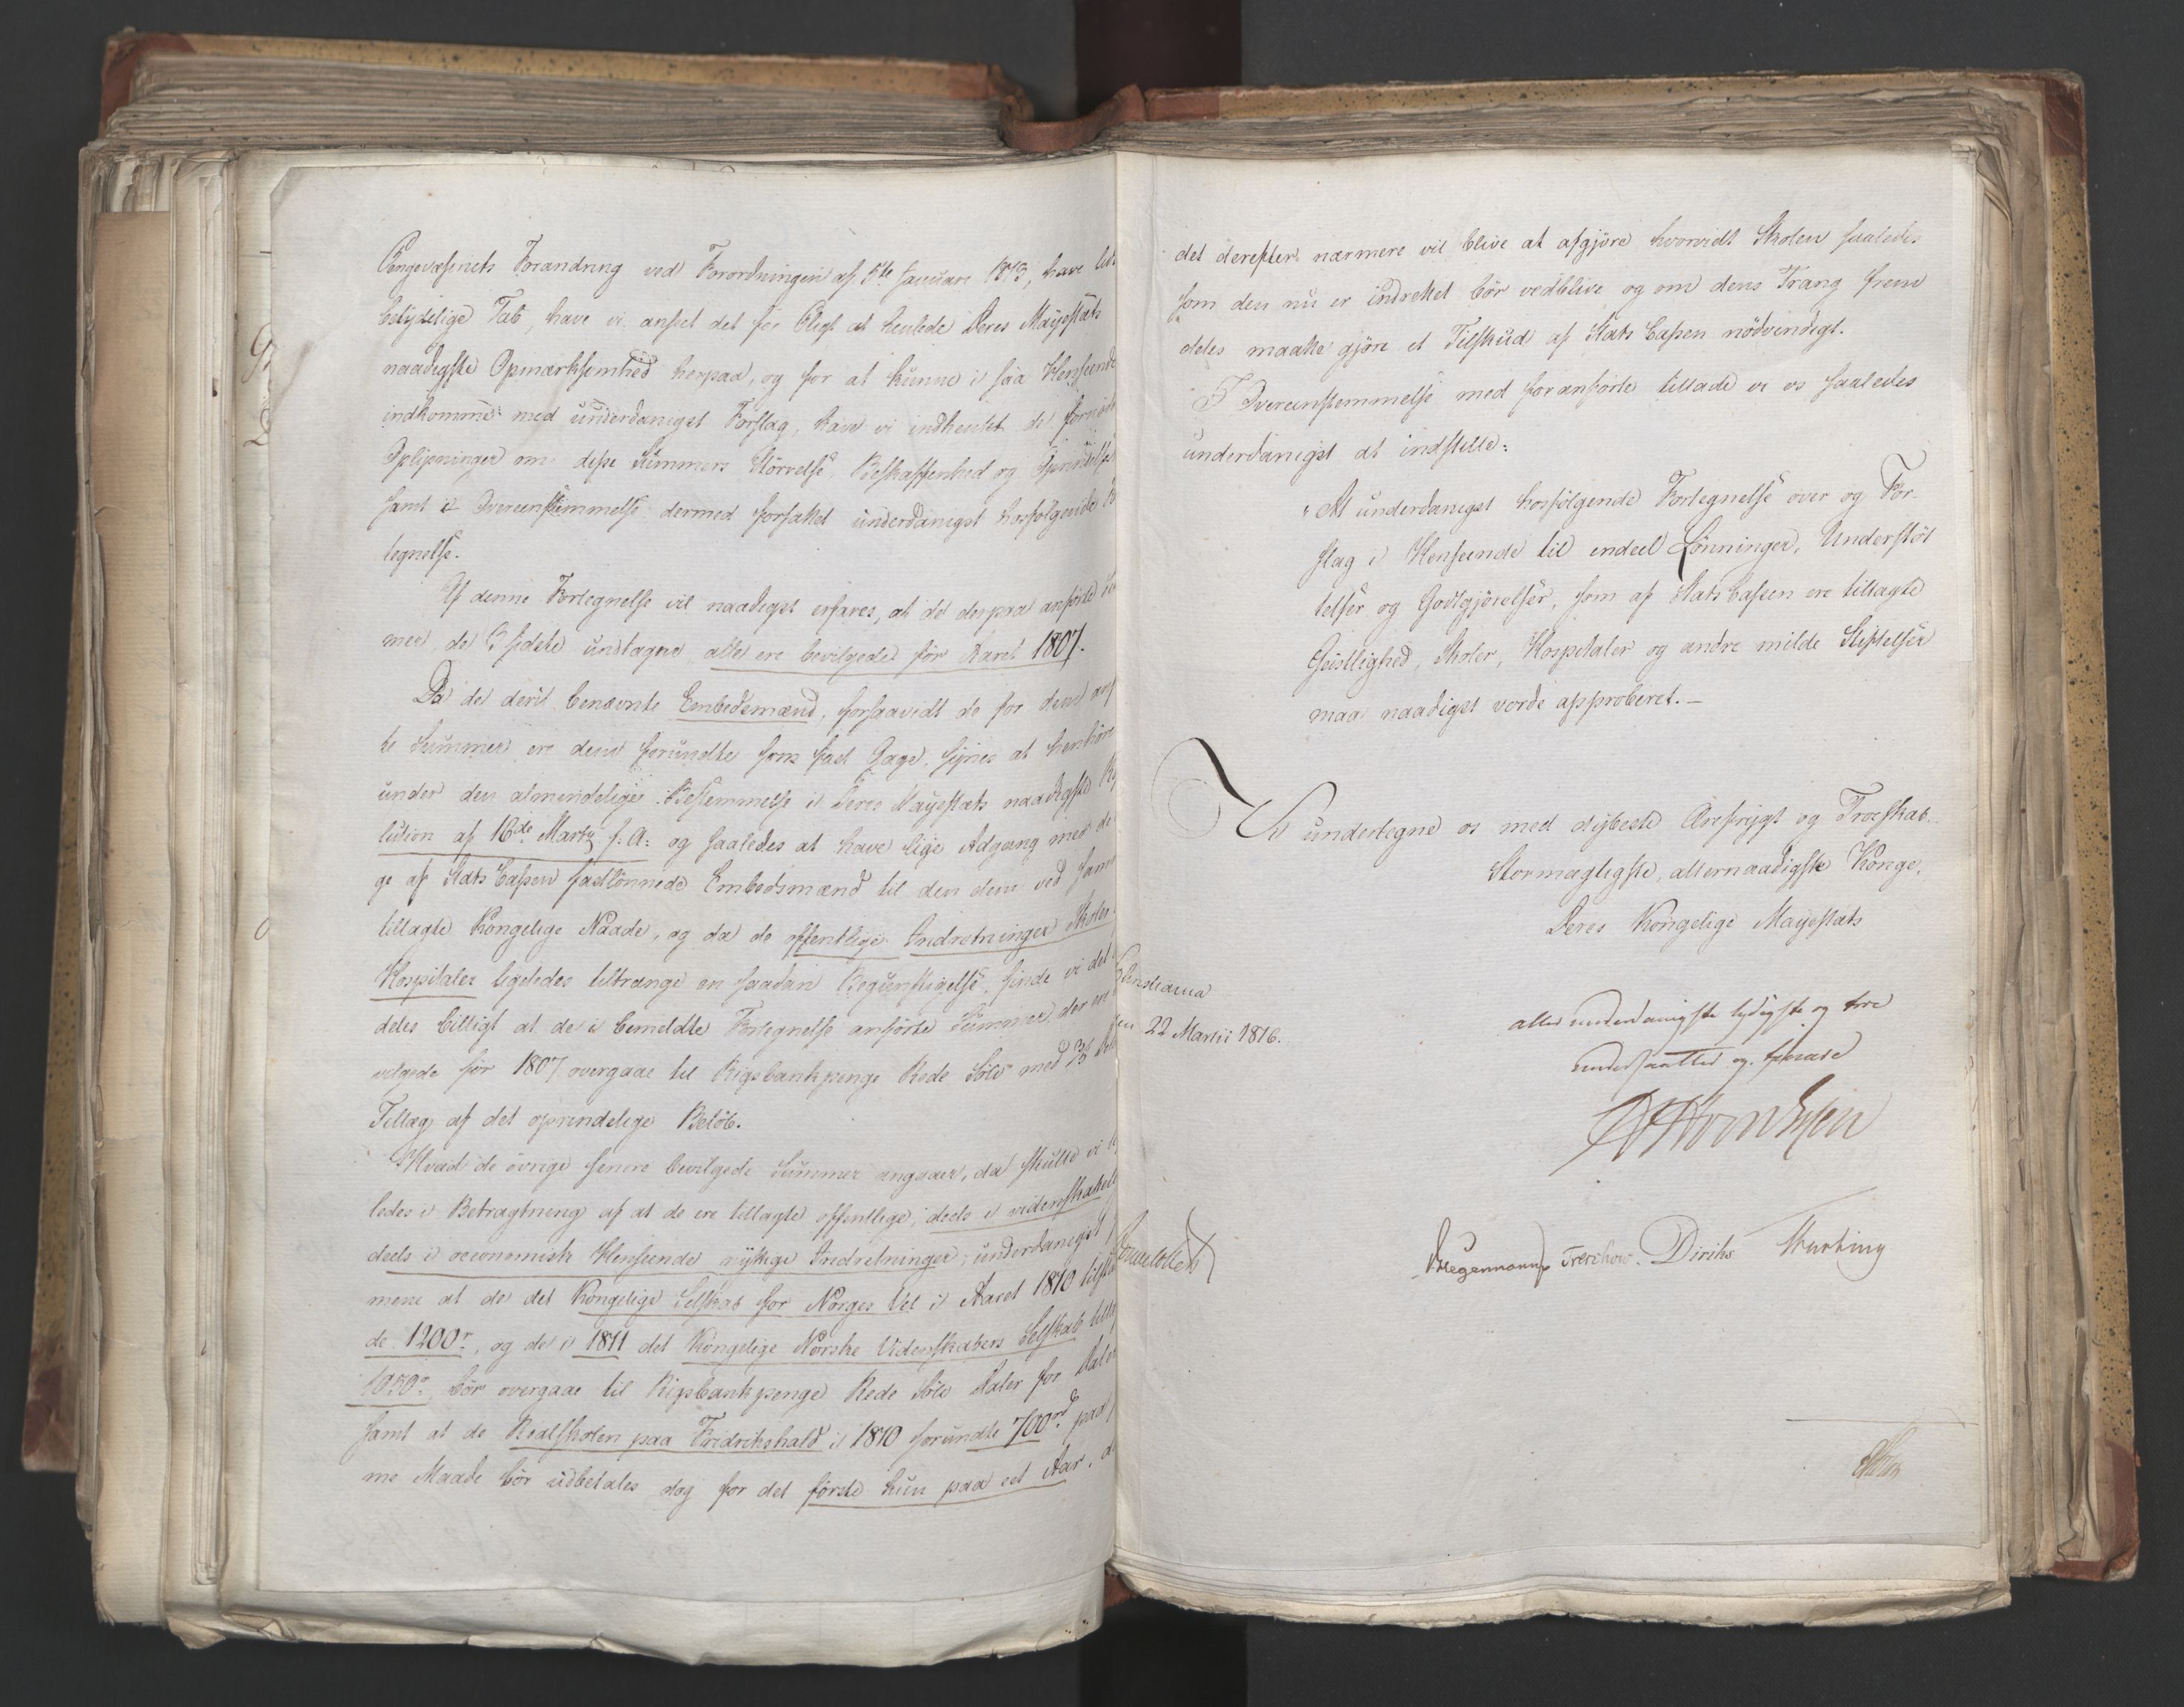 Pengevæsenets Forandring ved Forordningen af 5te Januarii 1813, have lidt
betydelige Tab, have vi anseet det for Pligt at henlede Deres Majestæts
naadigste Opmærksomhed herpaa, og for at kunne i saa Henseende
indkomme med underdanigst Forslag, have vi indhentet de fornødne
Oplysninger om disse Summers Störrelse, Beskaffenhed og Oprindelse
samt i Overeensstemmelse dermed forfattet underdanigst hosfølgende
tegnelse.
Af denne Fortegnelse vil naadigst erfares, at de derpaa anførte
mer, de 3 sidste undtagne, alle ere bevilgede för Aaret 1807.
Da de deri benævnte Embedsmænd, forsaavidt de for dem anf
te Summer ere dem forundte som fast Gage, synes at henhöre
under den almindelige Bestemmelse i Deres Mayestæts naadigste
lution af 16de Martz f. A: og saaledes at have lige Adgang med de
ge af Stats Cassen fastlönnede Embedsmænd til den dem ved samme
tillagte Kongelige Naade, og da de offentlige Indretninger Skoler
Hospitaler ligeledes tiltrænge en saadan Begunstigelse, finde vi det
deles billigt at de i bemeldte Fortegnelse anförte Summer, der ere
vilgede för 1807 overgaae til Rigsbankpenge Rede Sölv med
Tillæg af det oprindelige Belöb.
Hvad de övrige senere bevilgede Summer angaaer, da skulle vi
ledes i Betragtning af at de ere tillagte offentlige, deels i videnskabel
deels i oeconomisk Henseende nyttige Indretninger, underdanigst
mene at de det Kongelige Selskab for Norges Vel i Aaret 1810 tilst
de 1200r, og de i 1811 det Kongelige Norske Videnskabers Selskab till
1050r, bör overgaae til Rigsbankpenge Rede Sölv Daler for Daler
samt at de Realskolen paa Fredrikshald i 1810 forundte 700rd paa
me Maade bör udbetales dog for det förste kun paa eet Aar, d
det derefter nærmere vil blive at afgjöre hvorvidt Skolen saaledes
som den nu er indrettet bör vedblive og om dens Trang frem
deles maatte gjöre et Tilskud af Stats Cassen nödvendigt.
I Overeensstemmelse med foranförte tillade vi os saaledes
underdanigst at indstille:
"At underdanigst hosfölgende Fortegnelse over og For-
slag i Henseende til endeel Lönninger, Understöt
telser og Godtgjörelser, som af Stats Cassen ere tillagte
Geistlighed, Skoler, Hospitaler og andre milde Stiftelser
maa naadigst vorde approberet.—
Vi undertegne os med dybeste Ærefrygt og Troeskab
Stormægtigste, allernaadigste Konge,
Deres Kongelige Mayestæts
Christiania
den 22 Martii 1816.
allerunderdanigste lydigste og troe
undersaatter og tienere
Sommerfeldt Hegermann Treschow. Diriks